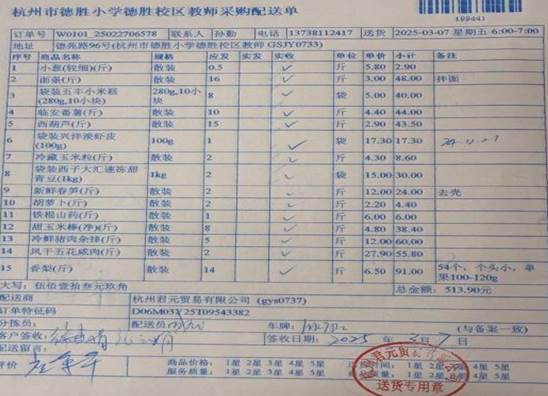 杭州市德胜小学德胜校区教师采购配送单
199441
订单号 W0101_25022706578 联系人 孙勤 电话 13738112417 送货 2025-03-07 星期五 6:00-7:00
地址 德苑路96号(杭州市德胜小学德胜校区教师 GSJY0733)
序号 商品名称 规格 应发 实发 实收 单位 单价 小计 备注
1 小葱(较细)(斤) 散装 0.5 斤 5.80 2.90
2 面条(斤) 散装 16 斤 3.00 48.00 拌面
3 袋装五丰小米糕(280g,10小块) 280g,10小块 8 袋 5.00 40.00
4 临安番薯(斤) 散装 10 斤 4.40 44.00
5 西葫芦(斤) 散装 15 斤 2.90 43.50
6 袋装兴伴淡虾皮(100g) 100g 1 袋 17.30 17.30
7 冷藏玉米粒(斤) 散装 2 斤 4.30 8.60
8 袋装西子大汇速冻甜青豆(1kg) 1kg 2 袋 15.00 30.00
9 新鲜春笋(斤) 散装 2 斤 12.00 24.00 去壳
10 胡萝卜(斤) 散装 2 斤 2.20 4.40
11 铁棍山药(斤) 散装 1 斤 6.00 6.00
12 甜玉米棒(净)(斤) 散装 8 斤 4.80 38.40
13 冷鲜猪肉杂排(斤) 散装 5 斤 12.00 60.00
14 风干五花咸肉(斤) 散装 2 斤 27.90 55.80
15 香梨(斤) 散装 14 斤 6.50 91.00 54个,个头小,单果100-120g
大写:伍佰壹拾叁元玖角 总金额:513.90元
配送商 杭州君元贸易有限公司 (gys0737)
订单特征码
分拣员: 配送员 车牌: (与备案一致)
客户签收: 签收日期: 2025 年 3 7 日
配送留言:
评价 商品价格: 1星 2星 3星 4星 5星
服务质量: 1星 2星 3星 4星 5星
送货专用章